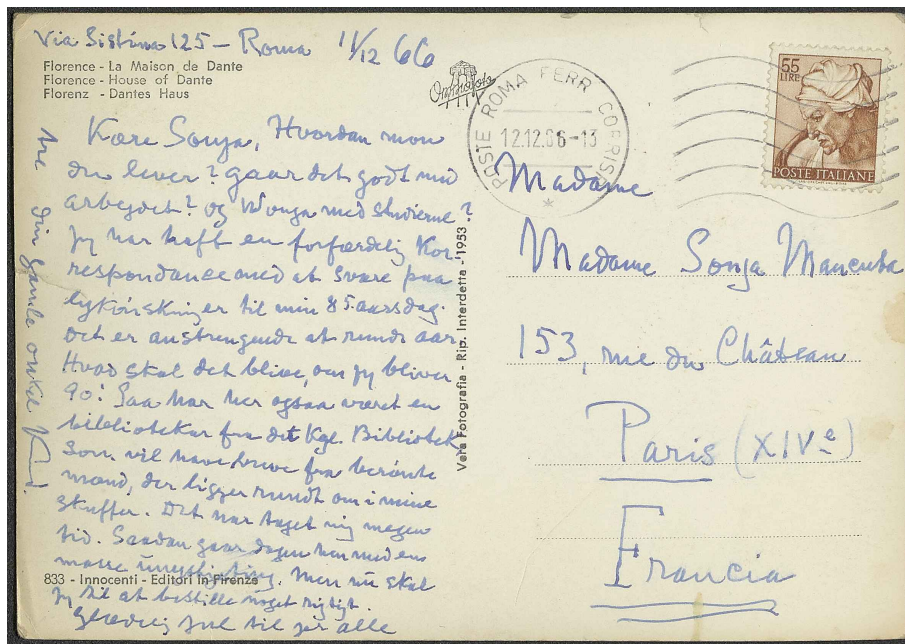 Via Sistina 125 - Roma 11/12 66
Florence - La Maison de Dante
Florence - House of Dante
Florenz - Dantes Haus
Kære Sonja, Hvordan mon
du lever? gaar det godt med
arbejdet? og Wonga med studierne?
Jeg har haft en forfærdelig Kor-
respondance med at svare paa
lykønskninger til min 85 aarsdag.
Det er anstrengende at runde aar.
Hvad skal det blive, om jeg bliver
90! Saa har her ogsaa været en
bibliotekar fra det Kgl. Bibliotek
som vil have breve fra berömte
mænd, der ligger rundt om i mine
skuffer. Det har taget mig megen
tid. Saadan gaar dagen hen med en
masse. Men nu skal
jeg til at bestille noget rigtigt.
Glædelig Jul til jer alle
din gamle onkel
833 - Innocenti - Editori in Firenze
Vera Fotografia - Rip. Interdetta - 1953
POSTE ROMA FERR CORRISP
12.12.66-13
55
LIRE
POSTE ITALIANE
Madame
Madame Sonja Mancuba
153, rue du Château
Paris (XIVe)
Francia